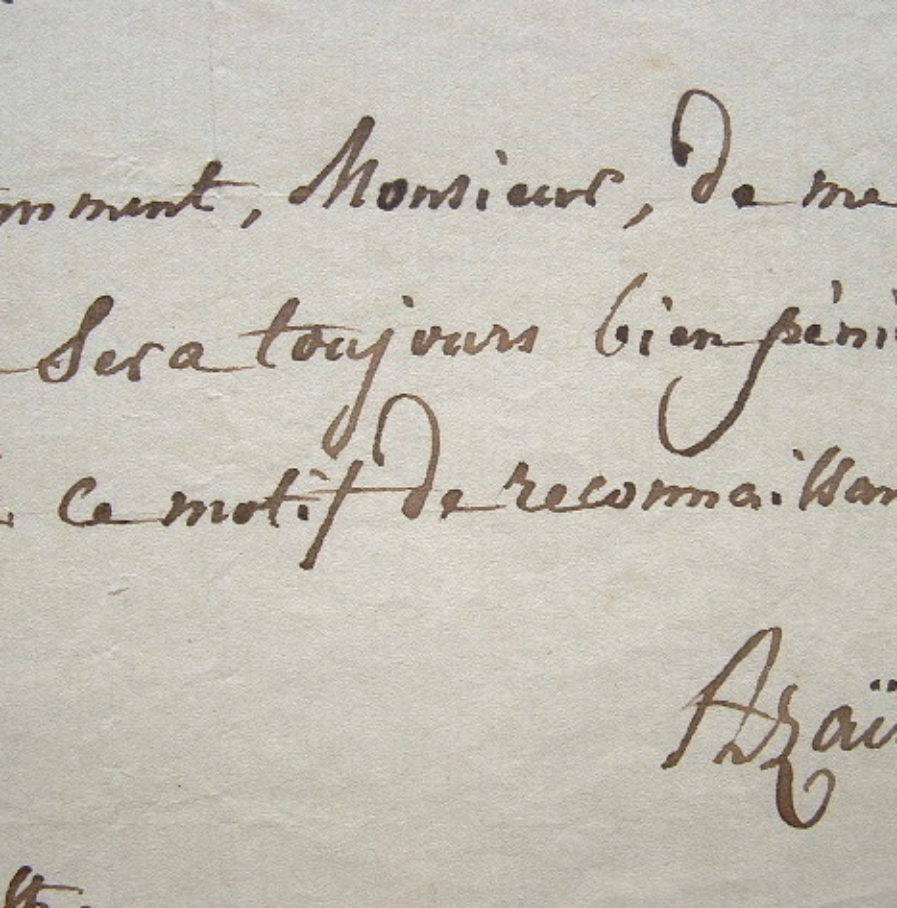 mment, Monsieur, de me
Sera toujours bien péni
ce motif de reconnaissan
Azaï